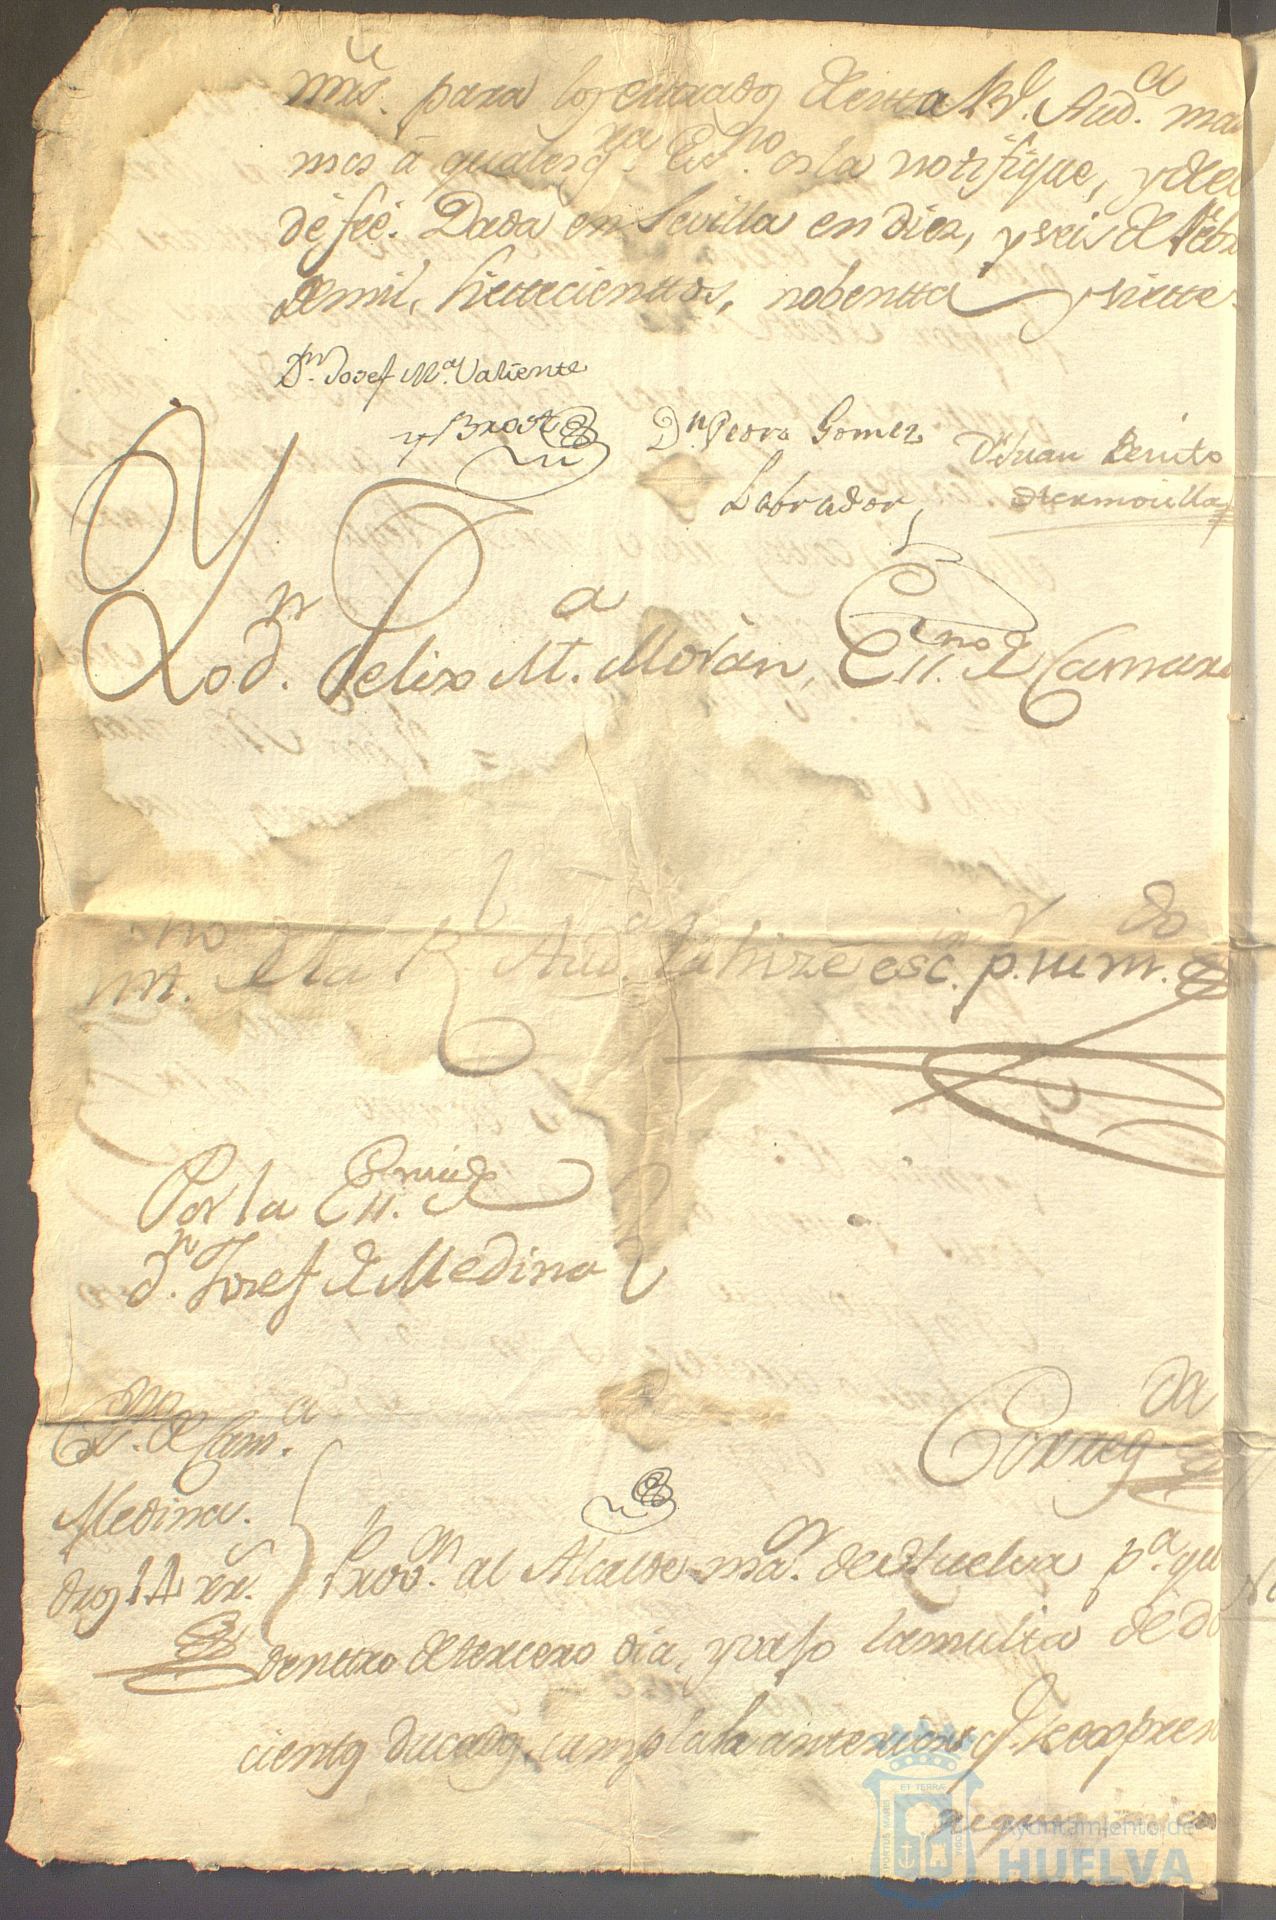 mrs. para los estrados de esta Rl. Auda. man
mos â qualesqra. Essno. os la notifique, y de el
dé feé. Dada en Sevilla en diez, y seis de Febro
de mil, sietecienttos, nobentta y siette.
Dn. Josef Ma. Valiente
y Brost
Dn. Pedro Gomez
Labrador
Dn. Juan Benito
Hermosilla
Yo dn. Felix Ma. Moràn, Essno. de Camara
mt. de la Rl. Auda. la hize esc. p. su m.do
Por la Essnia. de
dn. Josef de Medina
Essno. de Cama.
Medina.
dros 17 rr.
Corregda
Provon. al Alcalde mor. de Huelva pa. que
dentro de tercero dia, y vajo la multa de do
cientos ducados, cumpla la anterior q. se expresa
ET TERRÆ
PORTUS MARIS
CUSTODIA
Ayuntamiento de
HUELVA